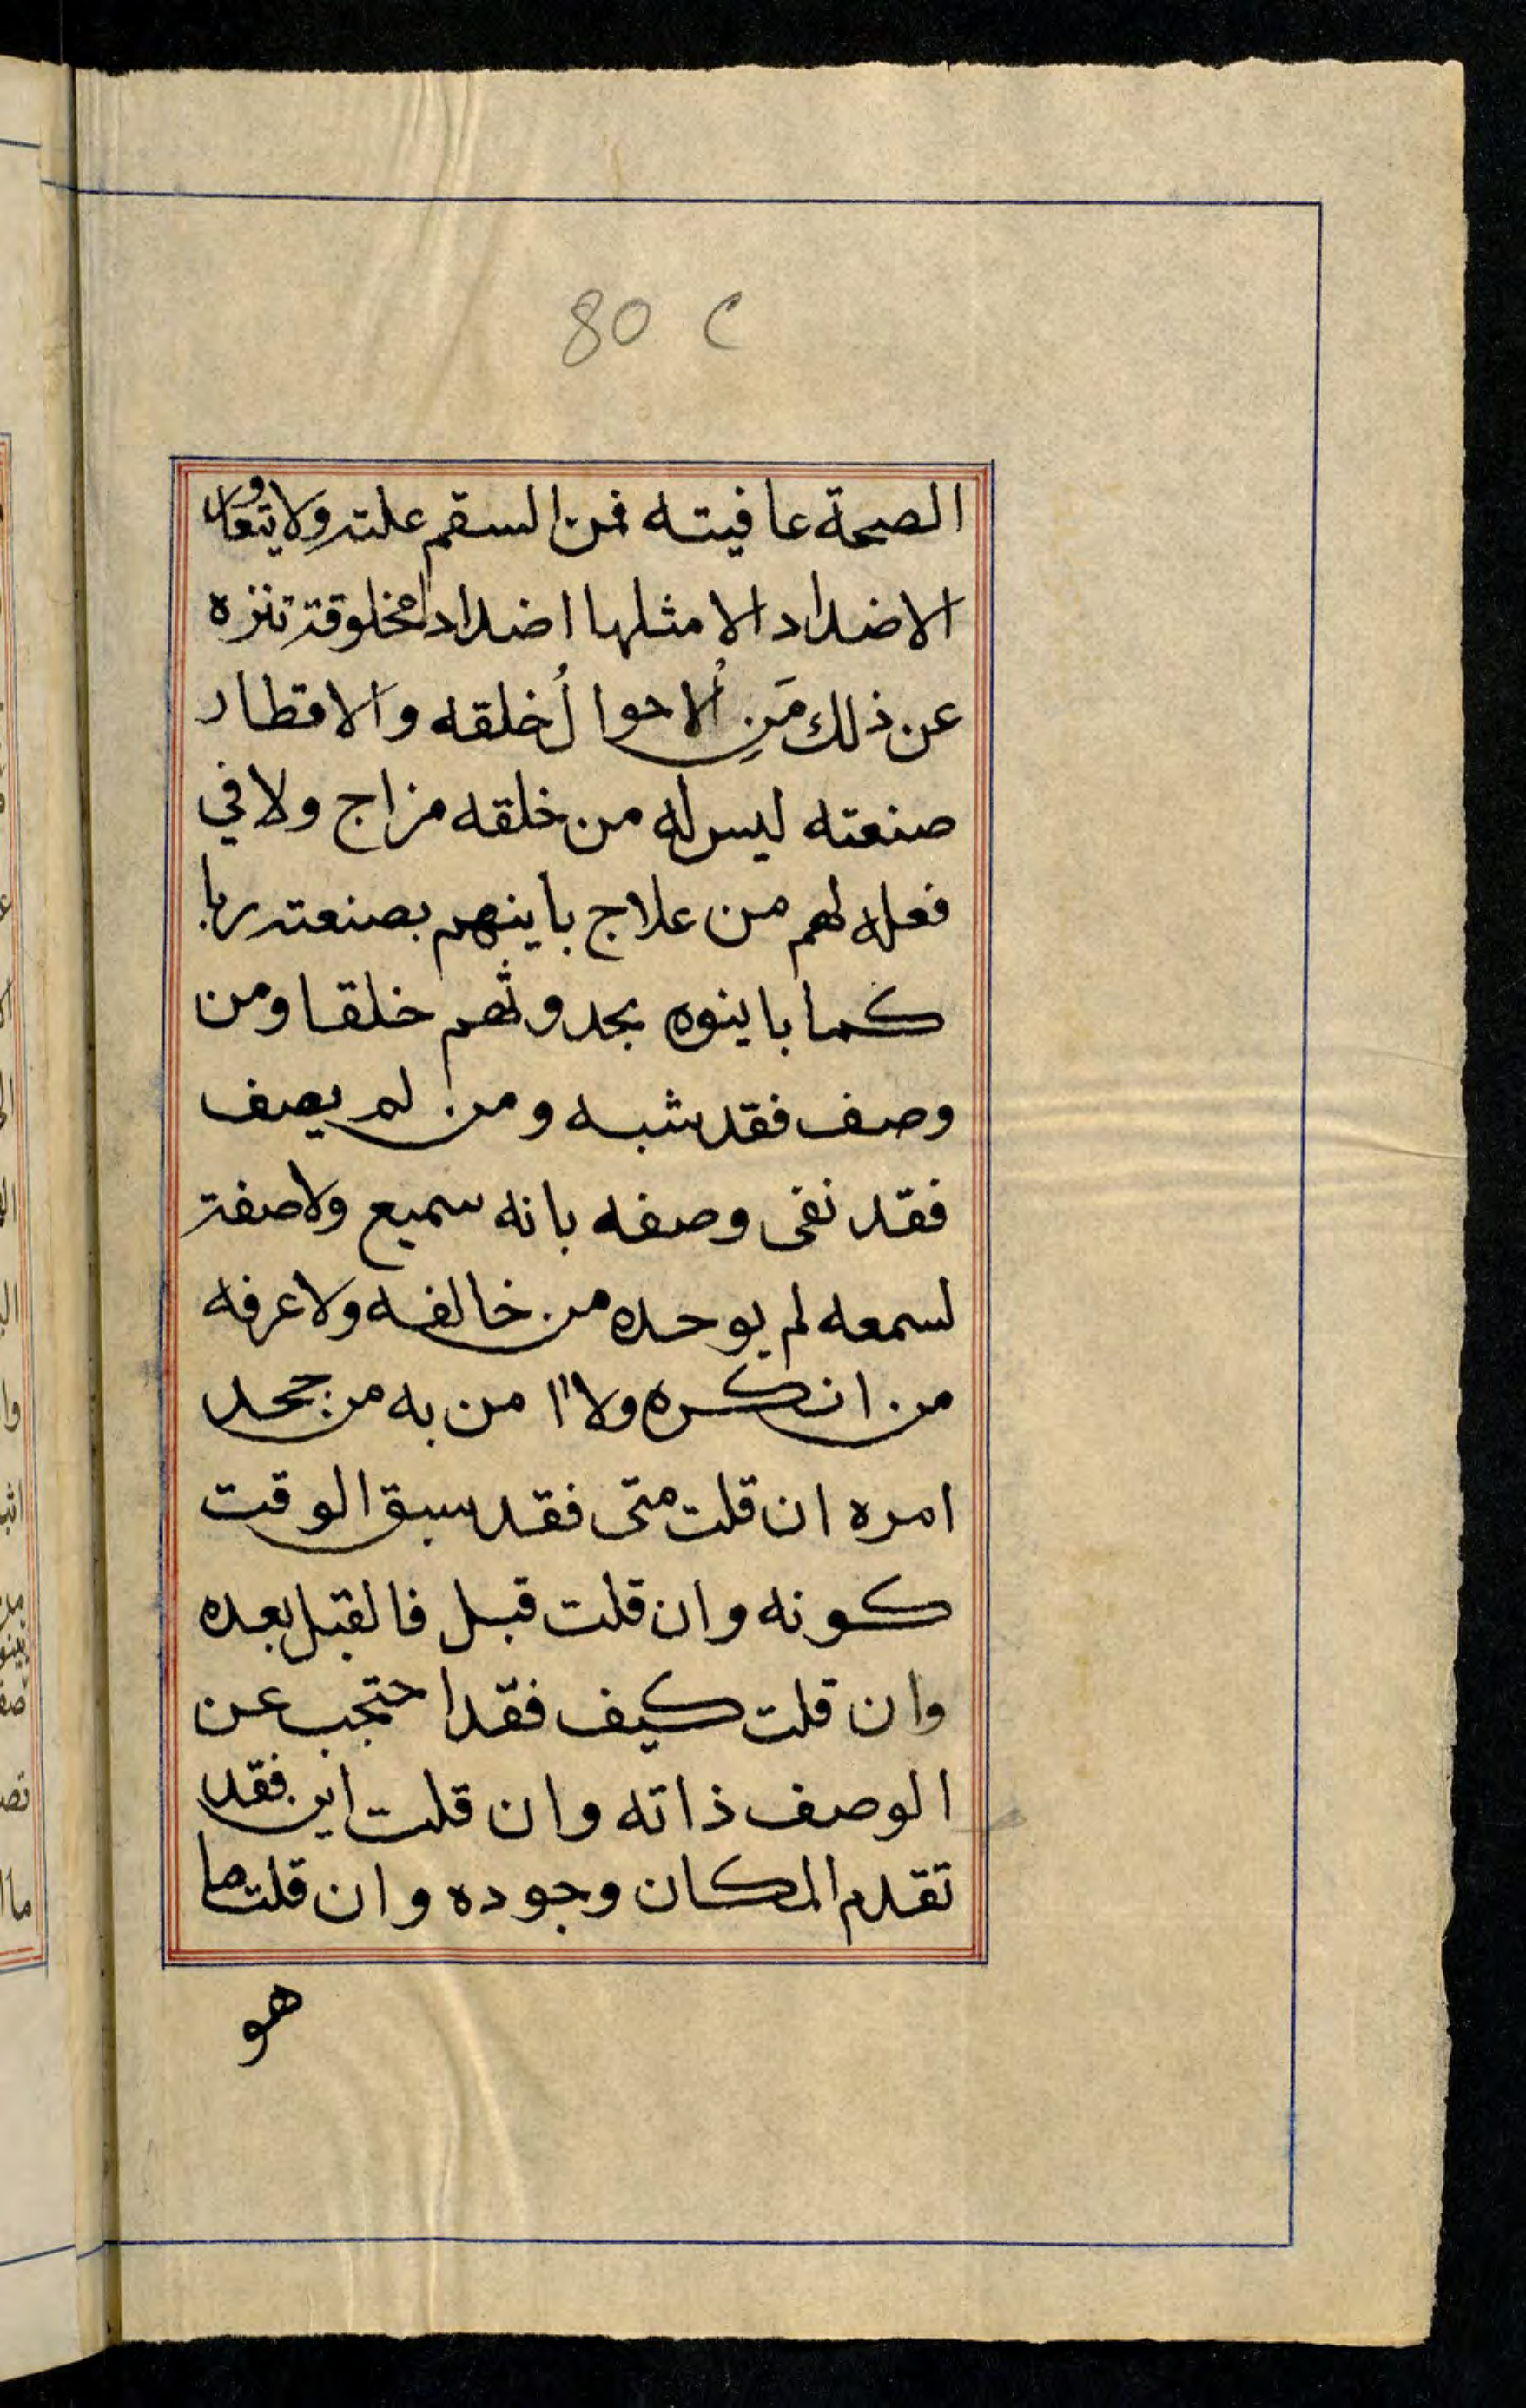 80 C
الصحة عافيته فمن السقم علته ولا يتعاور
الاضداد الا مثلها اضدادا مخلوقة تنزه
عن ذلك مَنِ اُلاحوا لُخلقه والاقطار
صنعته ليس له من خلقه مزاج ولا في
فعله لهم من علاج باينهم بصنعته ربا
كما باينوه بحدوثهم خلقا ومن
وصف فقد شبه ومن لم يصف
فقد نفى وصفه بانه سميع ولا صفة
لسمعه لم يوحده من خالفه ولا عرفه
من انكره ولا اامن به من جحد
امره ان قلت متى فقد سبق الوقت
كونه وان قلت قبل فالقبل بعده
وان قلت كيف فقد احتجب عن
الوصف ذاته وان قلت اين فقد
تقدم المكان وجوده وان قلت ما
هو